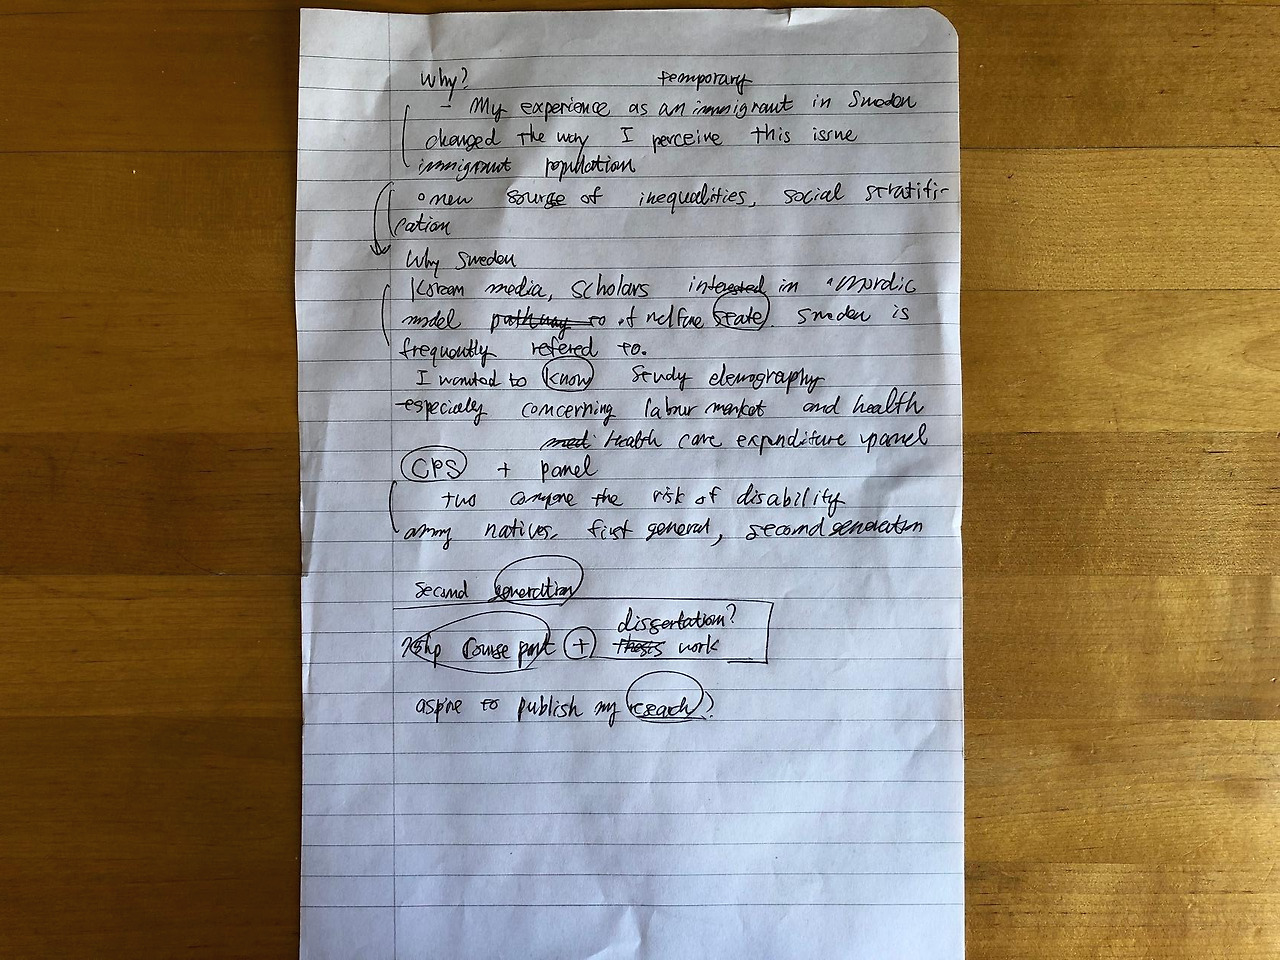 Why? temporary
- My experience as an immigrant in Sweden
changed the way I perceive this issue
immigrant population
new source of inequalities, social stratifi-
cation
Why Sweden
Korean media, scholars interested in "Nordic
model pathway to of welfare state. Sweden is
frequently refered to.
I wanted to know study demography
especially concerning labur market and health
med: Health care expenditure panel
CPS + panel
two compare the risk of disability
among natives, first general, second generation
second generation
dissertation?
course part + thesis work
aspire to publish my research?